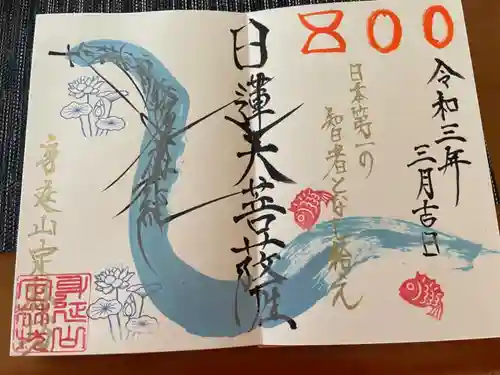 800
令和三年
三月吉日
日本第一の
智者となし給え
日蓮大菩薩
身延山定
身延山
定林坊